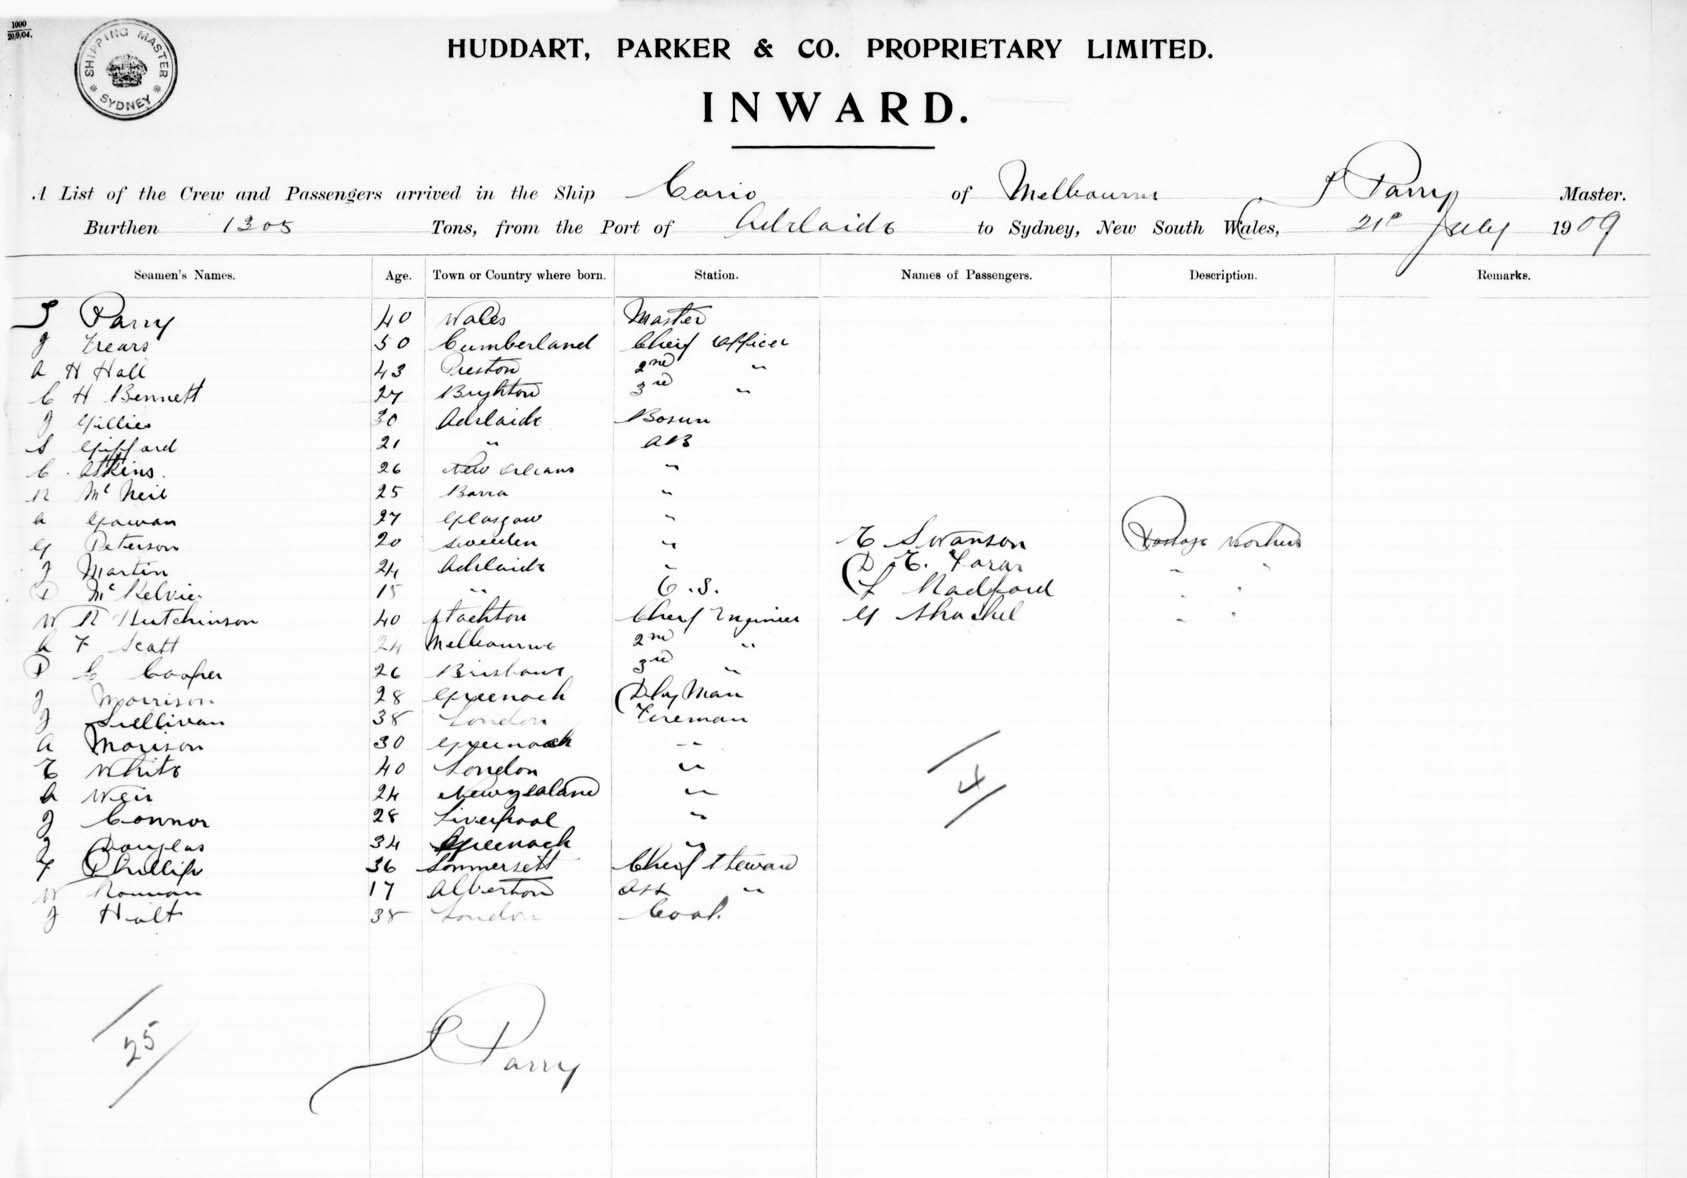 1000
20/9/04.
SHIPPING MASTER
SYDNEY
HUDDART, PARKER & CO. PROPRIETARY LIMITED.
INWARD.
A List of the Crew and Passengers arrived in the Ship Corio of Melbourne Parry Master.
Burthen 1305 Tons, from the Port of Adelaide to Sydney, New South Wales, 21 July 1909
Seamen's Names. Age. Town or Country where born. Station. Names of Passengers. Description. Remarks.
Parry 40 Wales Master
J 50 Cumberland Chief Officer
A H Hall 43 Preston 2nd "
C H Bennett 27 Brighton 3rd "
J Gillies 30 Adelaide Bosun
S Gifford 21 " AB
C Atkins. 26 New Orleans "
N McNeil 25 Barra "
A Gowan 27 Glasgow "
G Peterson 20 Sweden " E Swanson Passage Workers
J Martin 24 Adelaide " D E. " "
D McKelvie 15 " O.S. L Radford " "
W R Hutchinson 40 Stockton Chief Engineer G
A F Scott 24 Melbourne 2nd "
P C Cooper 26 Brisbane 3rd "
J Morrison 28 Greenock Dkyman
J Sullivan 38 London Fireman
A Morison 30 Greenock "
E White 40 London "
A Weir 24 New Zealand "
J Connor 28 Liverpool "
J Douglas 34 Greenock "
F Phillips 36 Sommersett Chief Steward
W 17 Alberton Ast "
J Holt 38 London Cook.
4
25
Parry